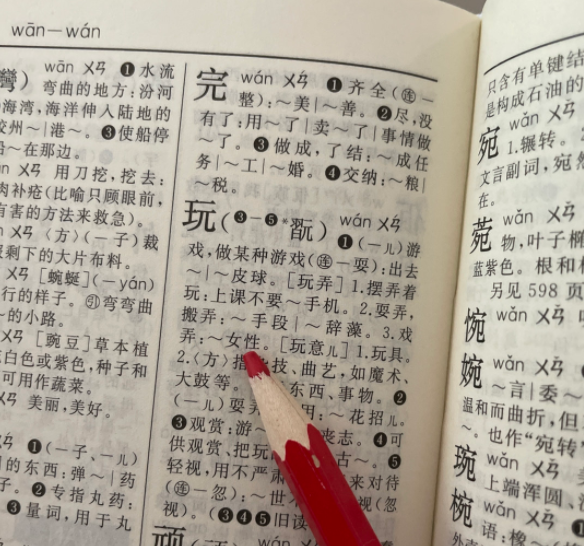 wān—wán
wān ㄨㄢ ❶水流
弯曲的地方:汾河
海湾,海洋伸入陆地的
胶州~|港~。❸使船停
船~在那边。
用刀挖,挖去:
肉补疮(比喻只顾眼前,
有害的方法来救急)。
〈方〉(一子)裁
剩下的大片布料。
ㄨㄢ [蜿蜒](-yán)
行的样子。㊁弯弯曲
~的小路。
ㄨㄢ [豌豆]草本植
白色或紫色,种子和
可用作蔬菜。
美丽,美好。
❶(一子、一儿)
的东西:弹~|药
子。❷专指丸药:
❸量词,用于丸
完 wán ㄨㄢˊ ❶齐全(㊣一
整):~美|~善。❷尽,没
有了:用~了|卖~了|事情做
~了。❸做成,了结:~成任
务|~工|~婚。❹交纳:~粮|
~税。
玩(❸-❺*翫) wán ㄨㄢˊ
❶(一儿)游
戏,做某种游戏(㊣一耍):出去
~|~皮球。[玩弄]1.摆弄着
玩:上课不要~手机。2.耍弄,
搬弄:~手段|~辞藻。3.戏
弄:~女性。[玩意儿]1.玩具。
2.〈方〉指 技、曲艺,如魔术、
大鼓等。 东西、事物。❷
(一儿)耍弄 用:~花招儿。
❸观赏:游~ 丧志。❹可
供观赏、把玩 古~。❺
轻视,用不严肃 来对待
(㊣一忽):~世 视(忽
视)。(❸❹❺旧读
顽
只含有单键结
是构成石油的
宛 wǎn ㄨㄢˇ
1.辗转。
文言副词,宛然
在。
菀 wǎn ㄨㄢˇ
物,叶子椭
蓝紫色。根和根
另见598页
惋 wǎn ㄨㄢˇ
婉 wǎn ㄨㄢˇ
~言|委~
温和而曲折,但
~。也作“宛转
琬 wǎn ㄨㄢˇ
上端浑圆、
椀 wǎn ㄨㄢˇ
语:橡~(